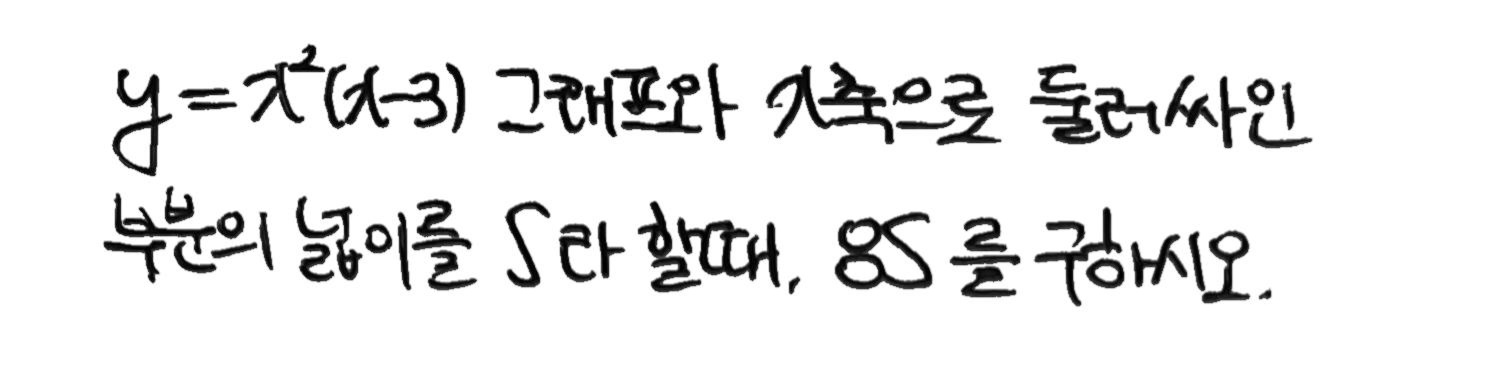 y=x²(x-3) 그래프와 x축으로 둘러싸인
부분의 넓이를 S라 할때, 8S를 구하시오.